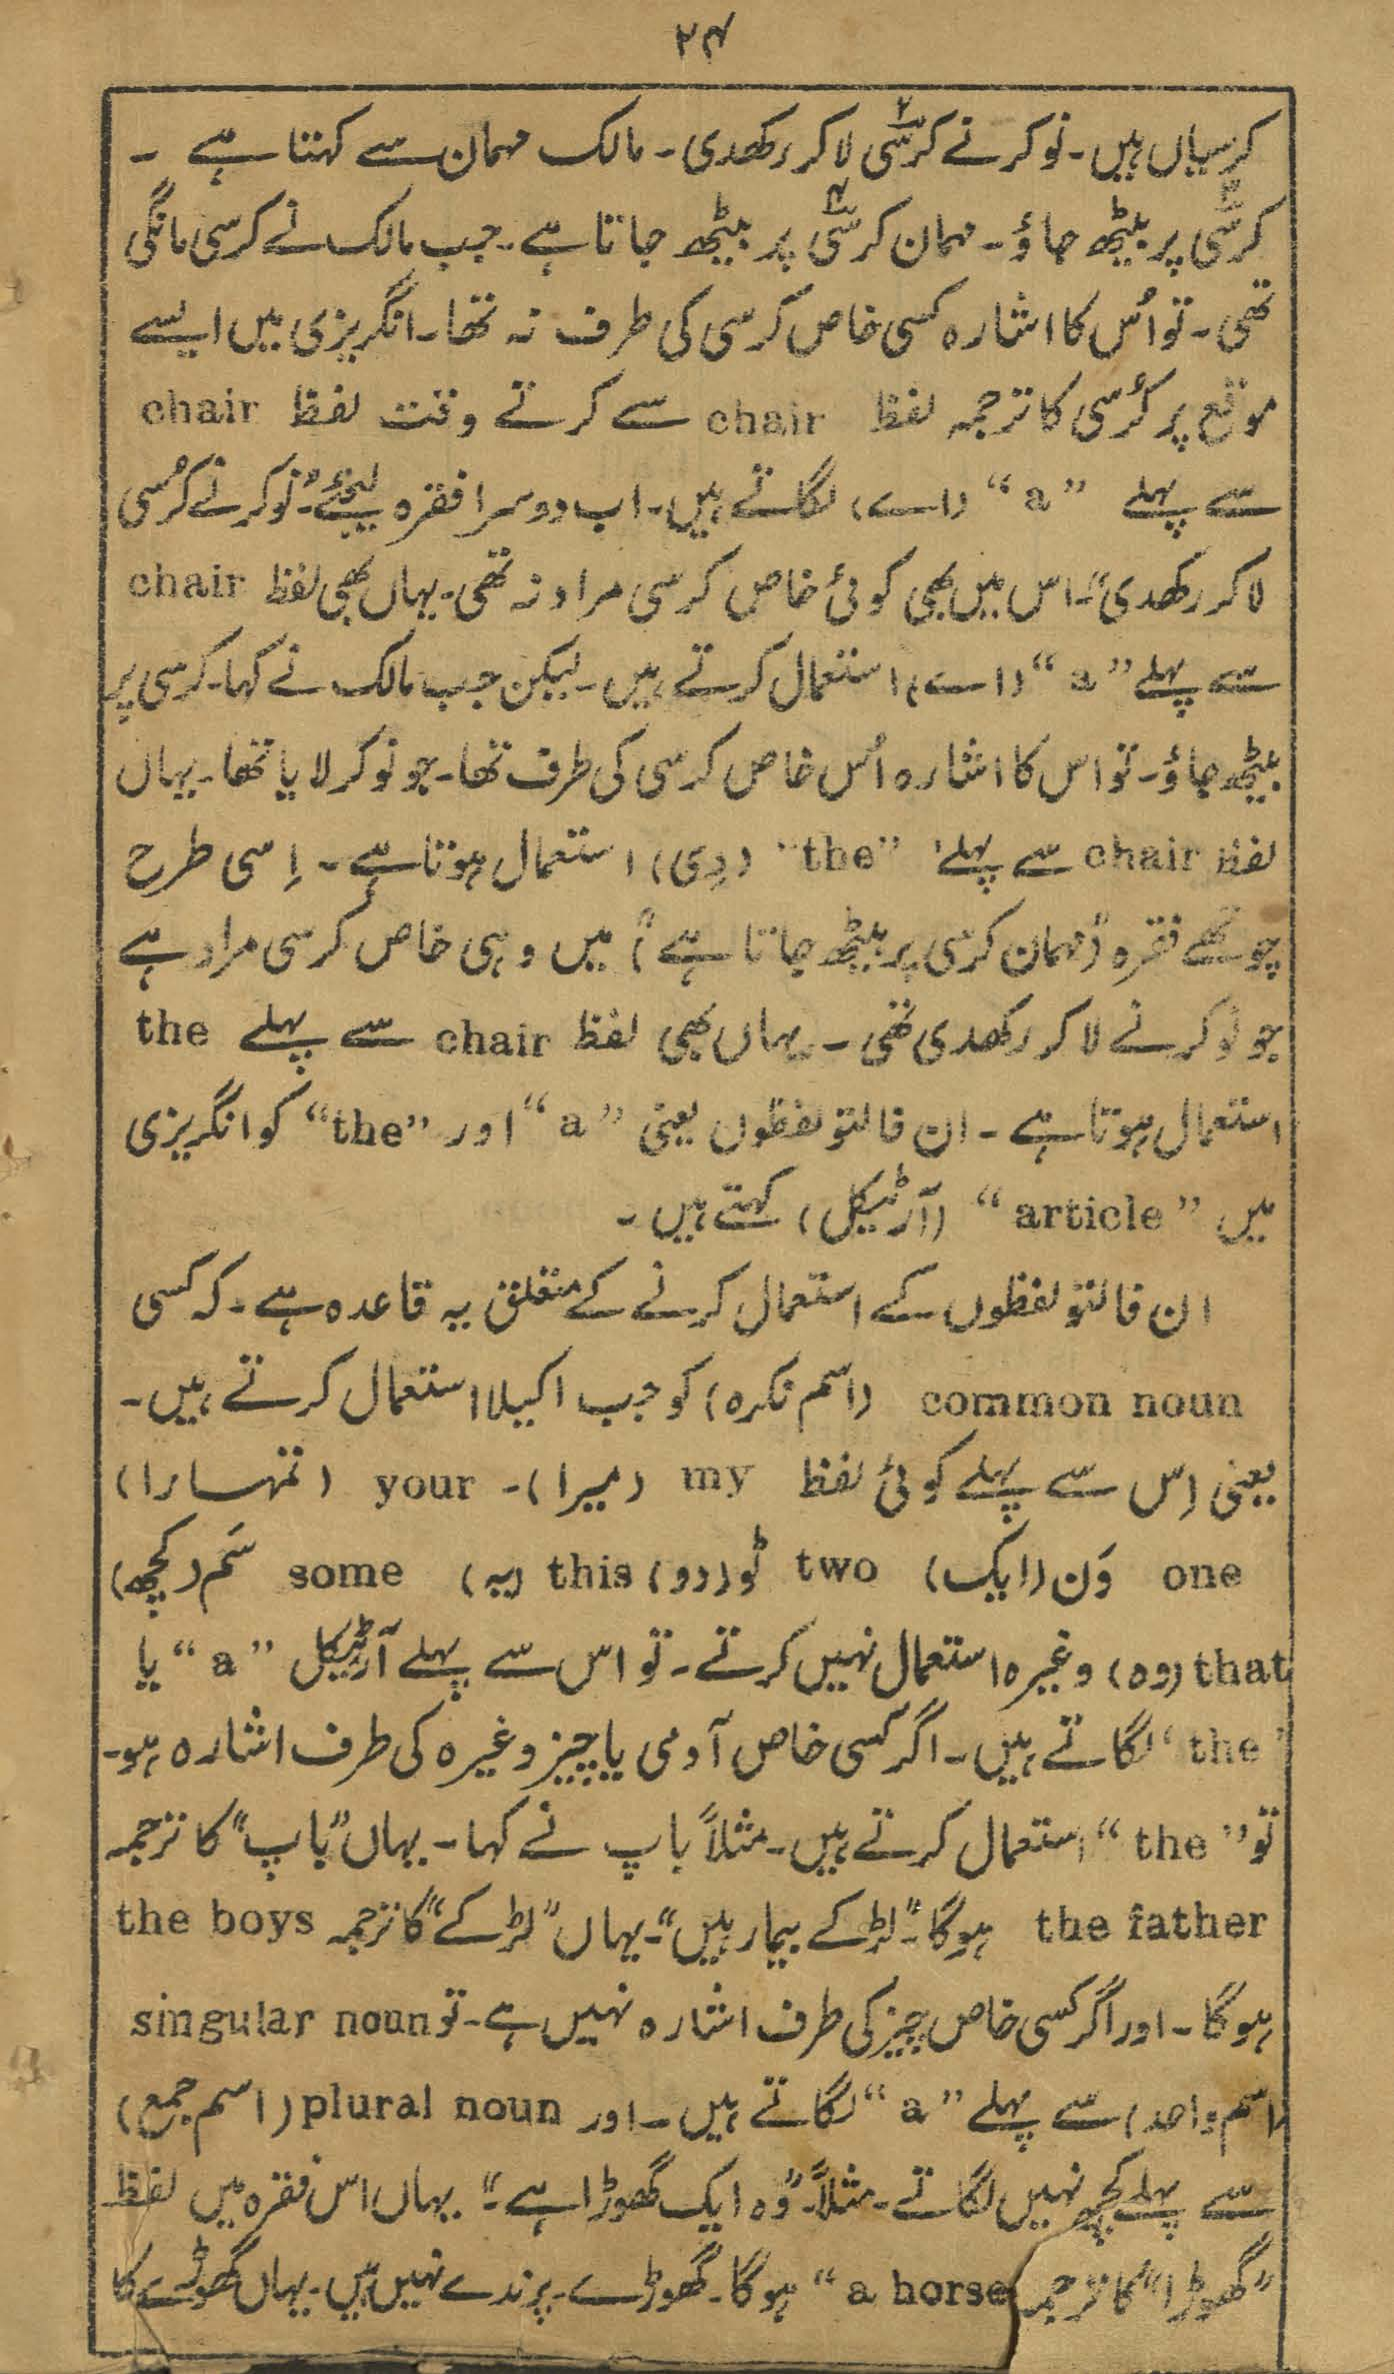 ۲۴
کرسیاں ہیں۔ نوکر نے کرسی۲ لا کر رکھدی۔ مالک مہمان سے کہتا ہے ۔
کرسی۳ پر بیٹھ جاؤ۔ مہمان کرسی۴ پر بیٹھ جاتا ہے۔ جب مالک نے کرسی مانگی
تھی۔ تو اُس کا اشارہ کسی خاص کرسی کی طرف نہ تھا۔ انگریزی میں ایسے
موقع پر کُرسی کا ترجمہ لفظ chair سے کرتے وقت لفظ chair
سے پہلے ”a“ (اے) لگاتے ہیں۔ اب دوسرا فقرہ لیجئے۔ ”نوکر نے کُرسی
لا کر رکھدی“۔ اس میں بھی کوئی خاص کرسی مراد نہ تھی۔ یہاں بھی لفظ chair
سے پہلے ”a“ (اے) استعمال کرتے ہیں۔ لیکن جب مالک نے کہا۔ کرسی پر
بیٹھ جاؤ۔ تو اس کا اشارہ اُس خاص کرسی کی طرف تھا۔ جو نوکر لایا تھا۔ یہاں
لفظ chair سے پہلے ”the“ (دِی) استعمال ہوتا ہے ۔ اِسی طرح
چوتھے فقرہ (”مہمان کرسی پر بیٹھ جاتا ہے“) میں وہی خاص کُرسی مراد ہے
جو نوکر نے لا کر رکھدی تھی ۔ یہاں بھی لفظ chair سے پہلے the
استعمال ہوتا ہے ۔ ان فالتو لفظوں یعنی ”a“ اور ”the“ کو انگریزی
میں ”article“ (آرٹیکل) کہتے ہیں ۔
ان فالتو لفظوں کے استعمال کرنے کے متعلق یہ قاعدہ ہے۔ کہ کسی
common noun (اسم نکرہ) کو جب اکیلا استعمال کرتے ہیں۔
یعنی اِس سے پہلے کوئی لفظ my (میرا)۔ your (تمہارا)
one وَن (ایک) two ٹو (دو) this (یہ) some سَم (کچھ)
that (وہ) وغیرہ استعمال نہیں کرتے۔ تو اس سے پہلے آرٹیکل ”a“ یا
”the“ لگاتے ہیں۔ اگر کسی خاص آدمی یا چیز وغیرہ کی طرف اشارہ ہو۔
تو ”the“ استعمال کرتے ہیں۔ مثلاً باپ نے کہا۔ یہاں ”باپ“ کا ترجمہ
the father ہوگا۔ ”لڑکے بیمار ہیں“۔ یہاں ”لڑکے“ کا ترجمہ the boys
ہوگا۔ اور اگر کسی خاص چیز کی طرف اشارہ نہیں ہے۔ تو singular noun
(اسم واحد) سے پہلے ”a“ لگاتے ہیں۔ اور plural noun (اسم جمع)
سے پہلے کچھ نہیں لگاتے۔ مثلاً۔ ”وُہ ایک گھوڑا ہے۔“ یہاں اس فقرہ میں لفظ
”گھوڑا“ کا ترجمہ a horse“ ہوگا۔ گھوڑے۔ پرندے نہیں ہیں۔ یہاں گھوڑے کا